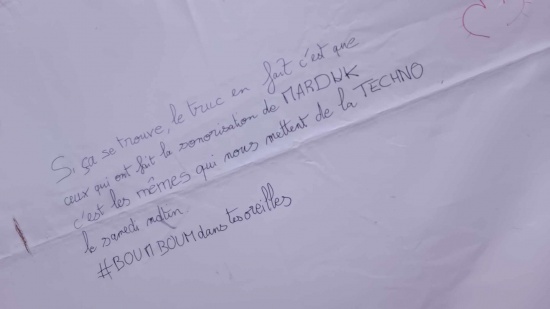 Si ça se trouve, le truc en fait c'est que
ceux qui ont fait la sonorisation de MARDUK
c'est les mêmes qui nous mettent de la TECHNO
le samedi matin.
#BOUM BOUM dans tes oreilles